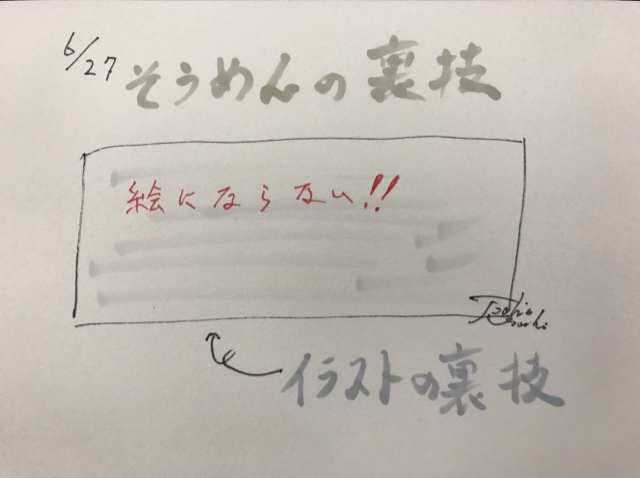 6/27
そうめんの裏技
絵にならない!!
イラストの裏技